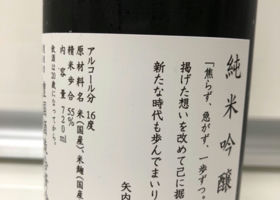 純米吟醸
「焦らず、急がず、一歩ずつ。
掲げた想いを改めて己に掘
新たな時代も歩んでまいり
矢内
アルコール分 16度
原材料名 米(国産)、米麹(国産
精米歩合 55%
内容量 720ml
飲酒は20歳になってから。